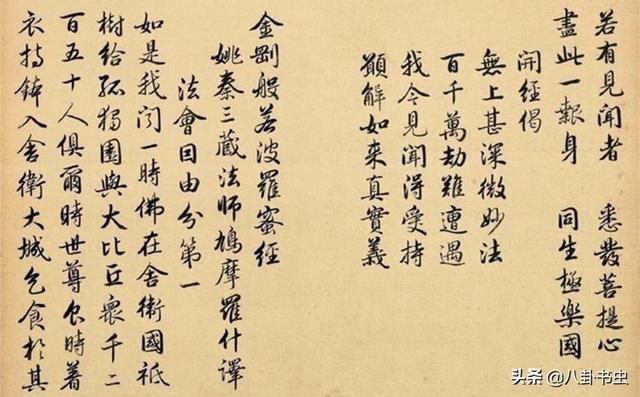 若有見聞者 悉發菩提心
盡此一報身 同生極樂國
開經偈
無上甚深微妙法
百千萬劫難遭遇
我今見聞得受持
願解如来真實義
金剛般若波羅蜜經
姚秦三藏法師鳩摩羅什譯
法會因由分第一
如是我闻一時佛在舍衛國祇
樹給孤獨園與大比丘衆千二
百五十人俱爾時世尊食時著
衣持鉢入舍衛大城乞食於其
头条 @八卦书虫